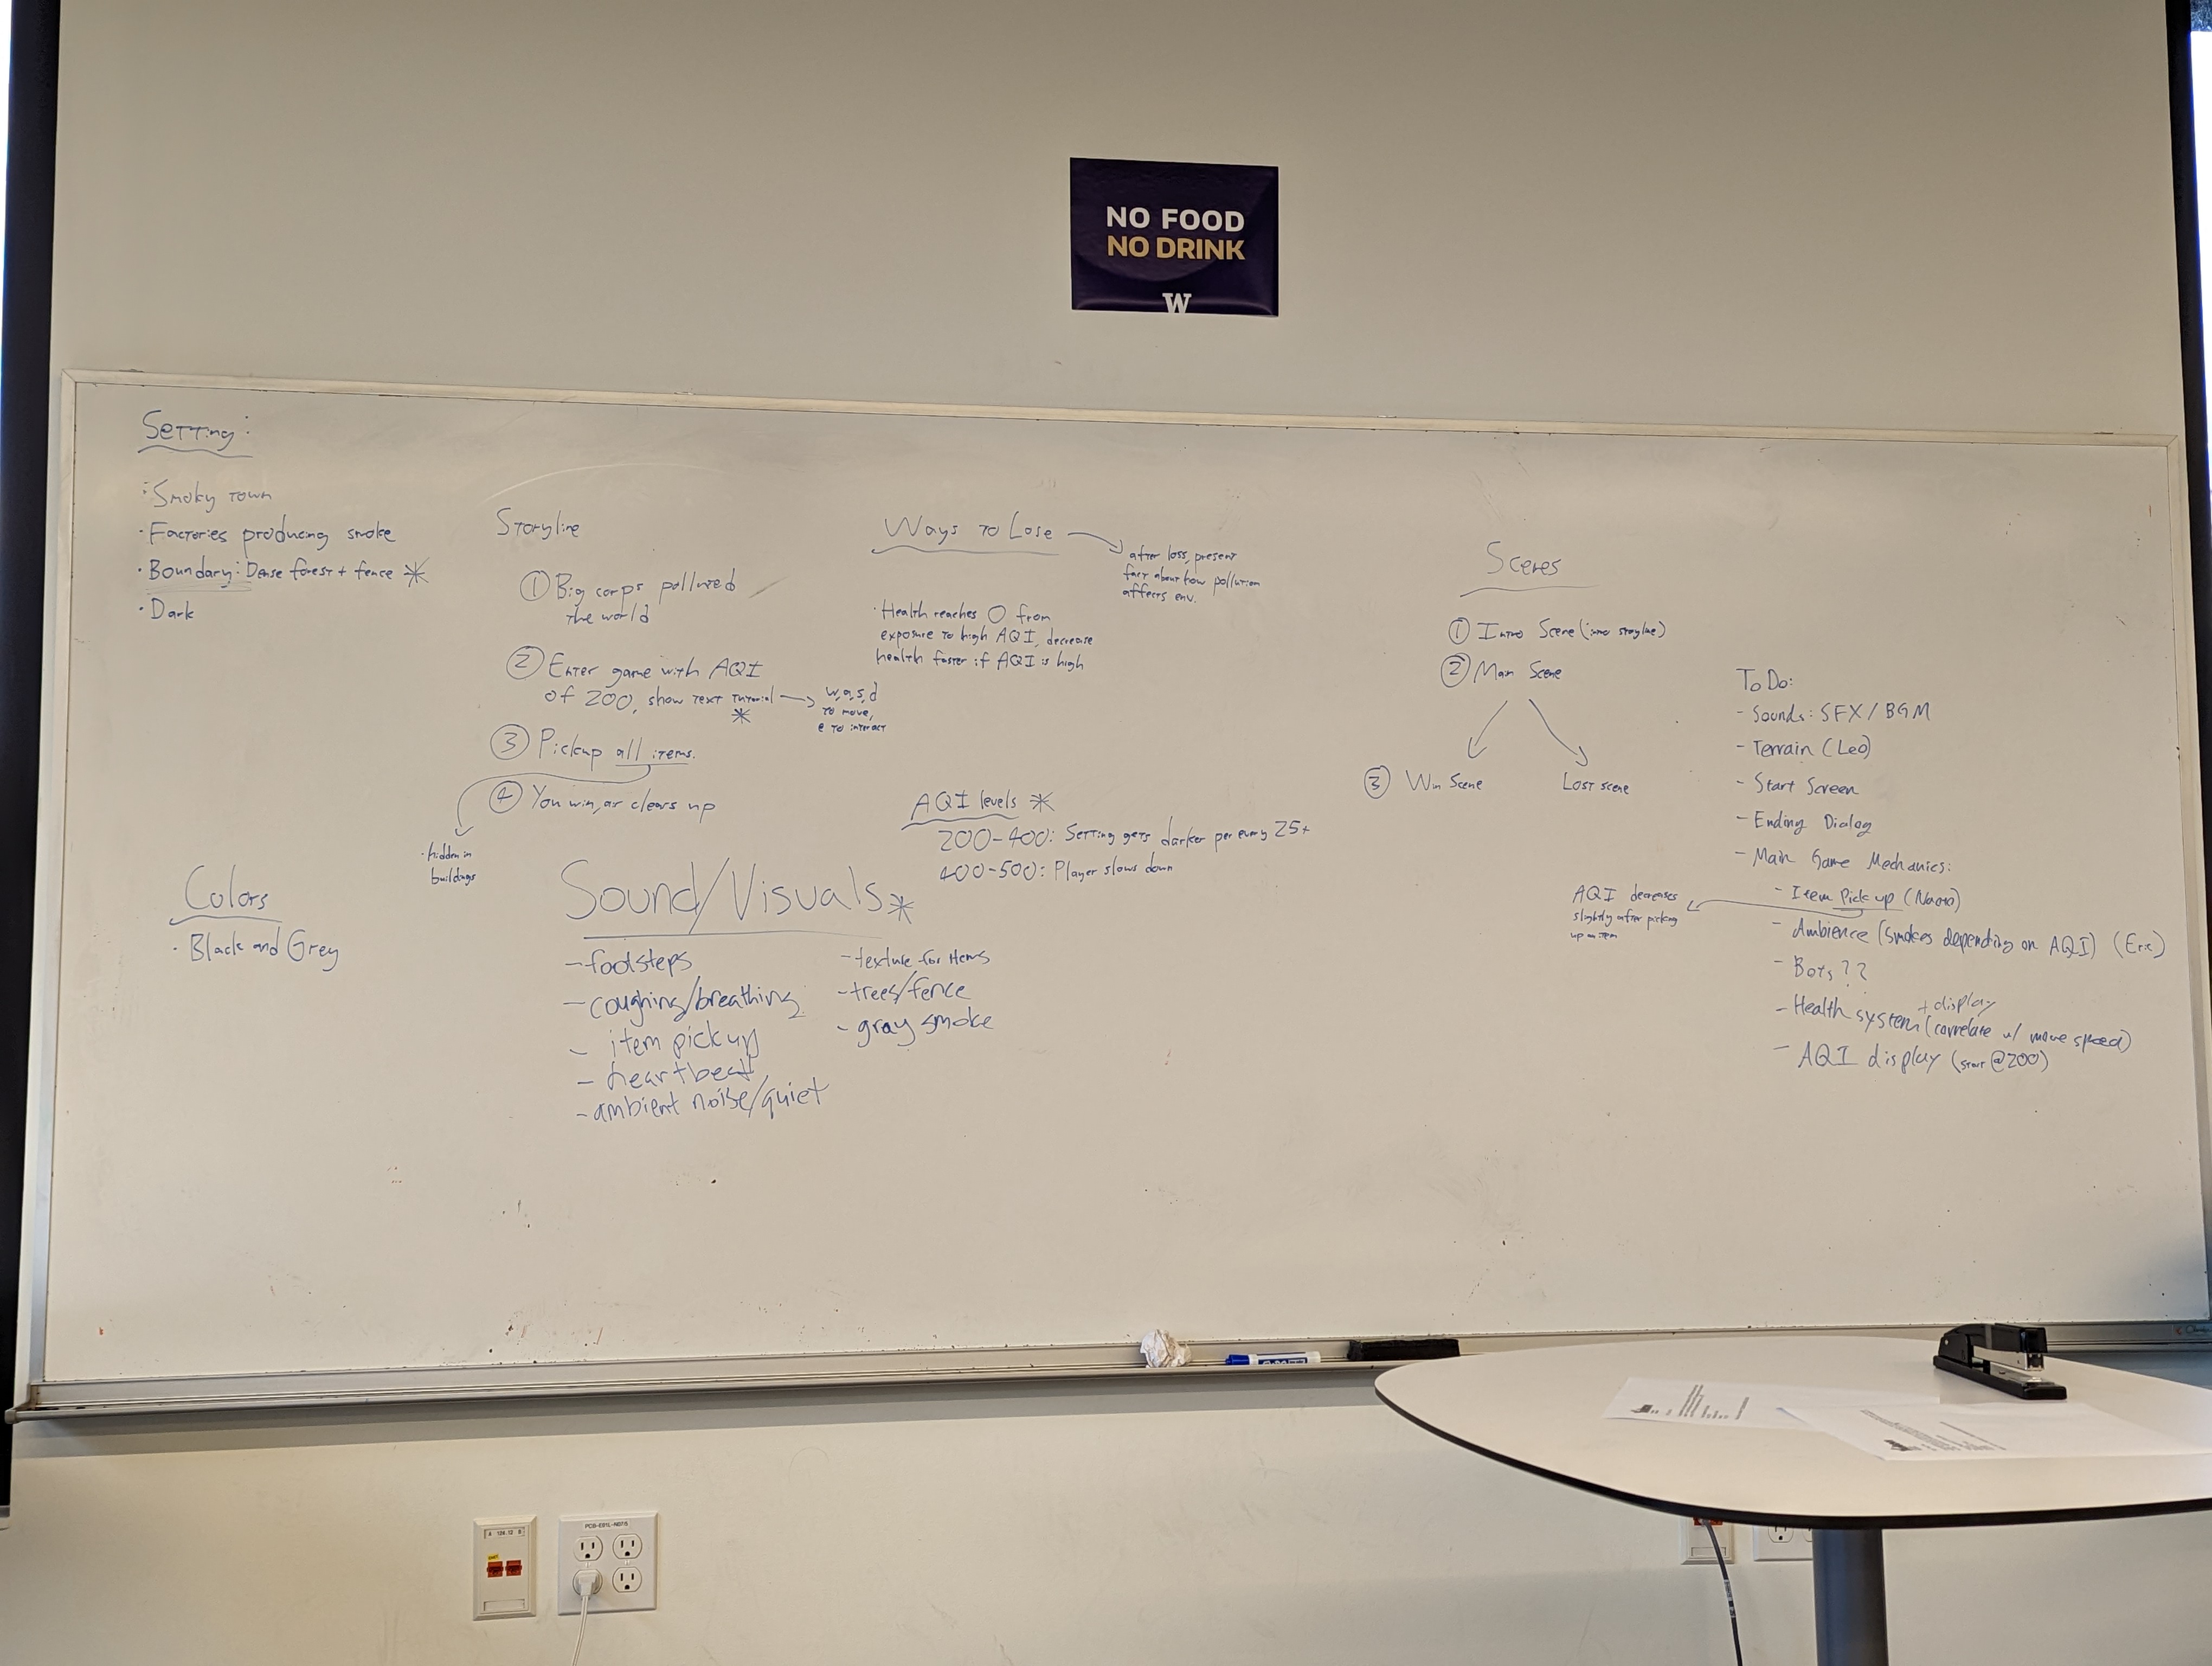 NO FOOD
NO DRINK
W
Setting:
· Smoky town
· Factories producing smoke
· Boundary: Dense forest + fence *
· Dark
Storyline
① Big corps polluted
the world
② Enter game with AQI
of 200, show text tutorial → w,a,s,d
to move,
e to interact
*
③ Pickup all items.
④ You win, air clears up
· hidden in
buildings
Ways to Lose →
after loss, present
fact about how pollution
affects env.
· Health reaches 0 from
exposure to high AQI, decrease
health faster if AQI is high
AQI levels *
200-400: Setting gets darker per every 25+
400-500: Player slows down
Colors
· Black and Grey
Sound/Visuals *
- footsteps
- coughing/breathing
- item pickup
- heartbeat
- ambient noise/quiet
- texture for items
- trees/fence
- gray smoke
Scenes
① Intro Scene (intro storyline)
② Main Scene
③ Win Scene
Lost scene
To Do:
- Sounds: SFX / BGM
- Terrain (Leo)
- Start Screen
- Ending Dialog
- Main Game Mechanics:
- Item Pick up
AQI decreases
slightly after picking
up an item
- Ambience (smokes depending on AQI) (Eric)
- Bots??
- Health system + display (correlate w/ move speed)
- AQI display (start @200)